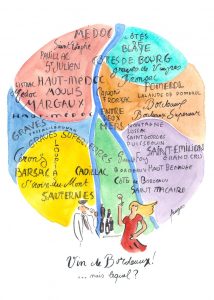 MÉDOC
Saint Estèphe
PAUILLAC
ST JULIEN
HAUT-MÉDOC
LISTRAC
Médoc
MOULIS
MARGAUX
HAUT-MÉDOC
GRAVES
PESSAC-LÉOGNAN
GRAVES SUPÉRIEURES
LOUPIAC
Cérons
BARSAC
CADILLAC
Ste Croix-du-Mont
SAUTERNES
CÔTES
BLAYE
CÔTES DE BOURG
graves de Vayres
Fronsac
CANON
FRONSAC
POMEROL
LALANDE DE POMEROL
Bordeaux
Bordeaux Supérieur
ENTRE
DEUX
MERS
MONTAGNE
LUSSAC
SAINT GEORGES
PUISSEGUIN
SAINT-ÉMILION
GRAND CRU
Haut Benauge
Côtes de Bordeaux
SAINT MACAIRE
Vin de Bordeaux!
... mais lequel?